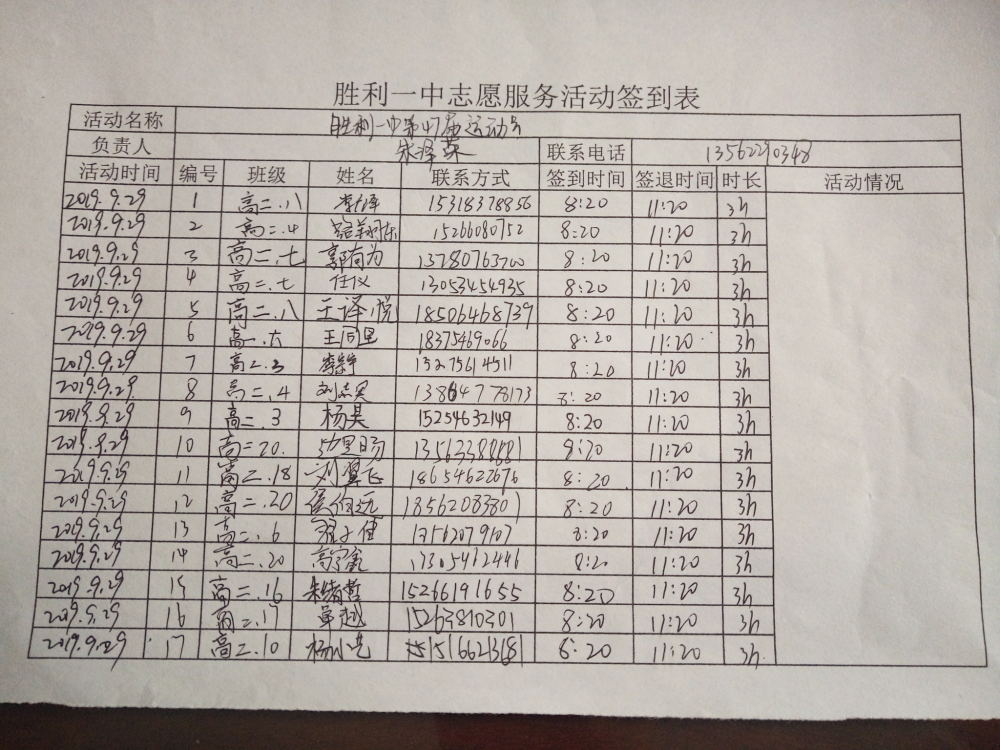 胜利一中志愿服务活动签到表
活动名称 胜利一中第47届运动会
负责人 朱泽英 联系电话 13562290348
活动时间 编号 班级 姓名 联系方式 签到时间 签退时间 时长 活动情况
2019.9.29 1 高二.八 15318378856 8:20 11:20 3h
2019.9.29 2 高二.4 15266080752 8:20 11:20 3h
2019.9.29 3 高二.七 郭有为 13780763700 8:20 11:20 3h
2019.9.29 4 高二.七 任仪 13053454935 8:20 11:20 3h
2019.9.29 5 高二.八 王译悦 18506468739 8:20 11:20 3h
2019.9.29 6 高二.六 王同里 18375469066 8:20 11:20 3h
2019.9.29 7 高二.3 15275614511 8:20 11:20 3h
2019.9.29 8 高二.4 刘志昊 13864778173 8:20 11:20 3h
2019.9.29 9 高二.3 杨昊 15254632149 8:20 11:20 3h
2019.9.29 10 高二20. 13563388881 8:20 11:20 3h
2019.9.29 11 高二.18 刘翼飞 18654622676 8:20 11:20 3h
2019.9.29 12 高二.20 18562083801 8:20 11:20 3h
2019.9.29 13 高二.6 8:20 11:20 3h
2019.9.29 14 高二.20 13305462446 8:20 11:20 3h
2019.9.29 15 高二.16 朱绪哲 15266191655 8:20 11:20 3h
2019.9.29 16 高二.17 单越 15263810301 8:20 11:20 3h
2019.9.29 17 高二.10 8:20 11:20 3h